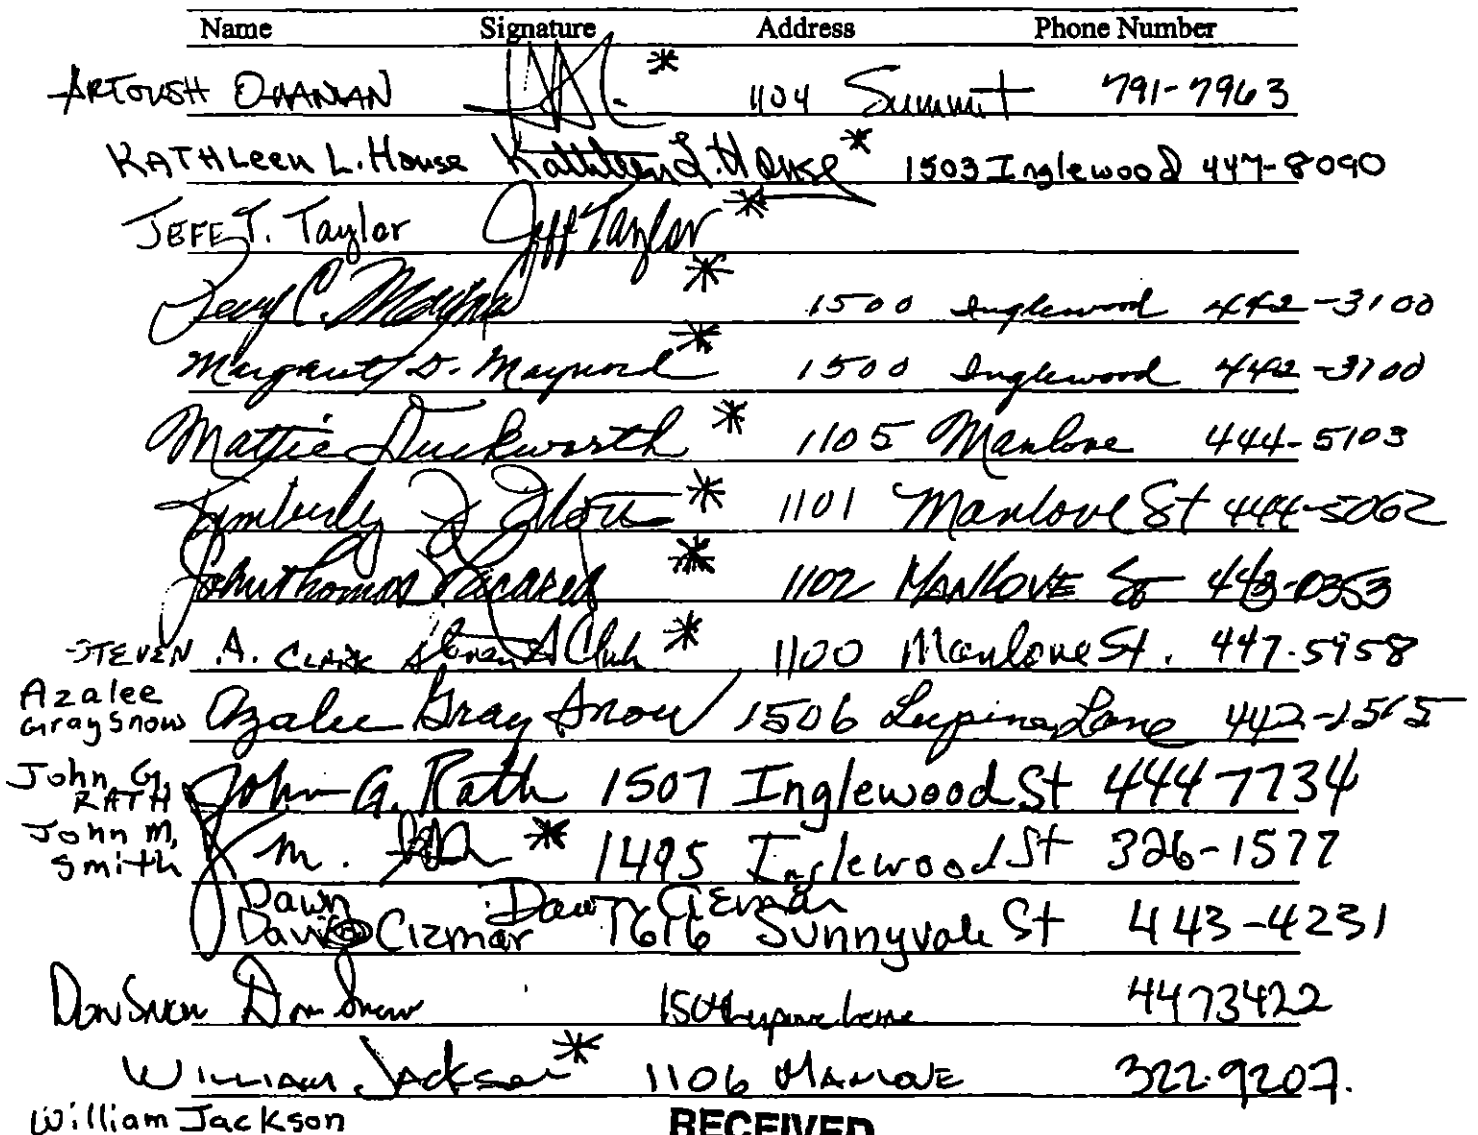 Name Signature Address Phone Number
ARTOUSH OHANIAN * 1104 Summit 791-7963
KATHLeen L. House Kathleen L. House * 1503 Inglewood 447-8090
JEFF T. Taylor Jeff Taylor *
C. * 1500 Inglewood 442-3100
Margaret D. Maynard * 1500 Inglewood 442-3100
Mattie Duckworth * 1105 Manlove 444-5103
Kymberly * 1101 Manlove St 444-5062
John Thomas * 1102 MANLOVE St 443-0353
STEVEN A. CLARK Steven A Clark * 1100 Manlove St. 447-5958
Azalee Gray Snow Azalee Gray Snow 1506 Lupine Lane 442-1515
John G. RATH John G. Rath 1507 Inglewood St 444 7734
John M. Smith M. * 1495 Inglewood St 326-1577
Dawn Dawn Cizmar
Cizmar 1616 Sunnyvale St 443-4231
Don Snow Don Snow Lupine Lane 4473422
William Jackson * 1106 MANLOVE 322-9207.
William Jackson
RECEIVED